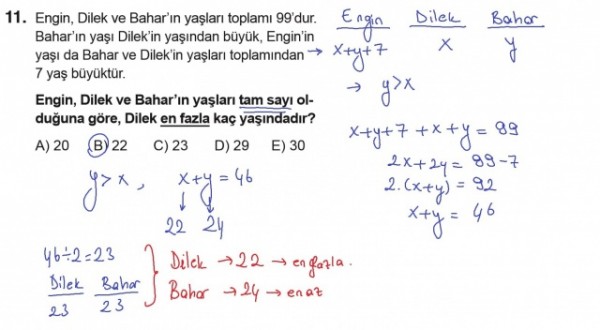 11. Engin, Dilek ve Bahar'ın yaşları toplamı 99'dur.
Bahar'ın yaşı Dilek'in yaşından büyük, Engin'in
yaşı da Bahar ve Dilek'in yaşları toplamından
7 yaş büyüktür.
Engin, Dilek ve Bahar'ın yaşları tam sayı ol-
duğuna göre, Dilek en fazla kaç yaşındadır?
A) 20 B) 22 C) 23 D) 29 E) 30
Engin Dilek Bahar
→ x+y+7 x y
→ y>x
x+y+7 +x+y = 99
2x+2y = 99-7
2.(x+y) = 92
x+y = 46
y>x , x+y = 46
↓ ↓
22 24
46÷2=23
Dilek Bahar
23 23
Dilek → 22 → en fazla.
Bahar → 24 → en az